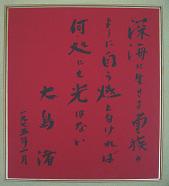 深海に生きる魚族の
ように自ら燃えなければ
何処にも光はない
大島渚
一九七五年一月